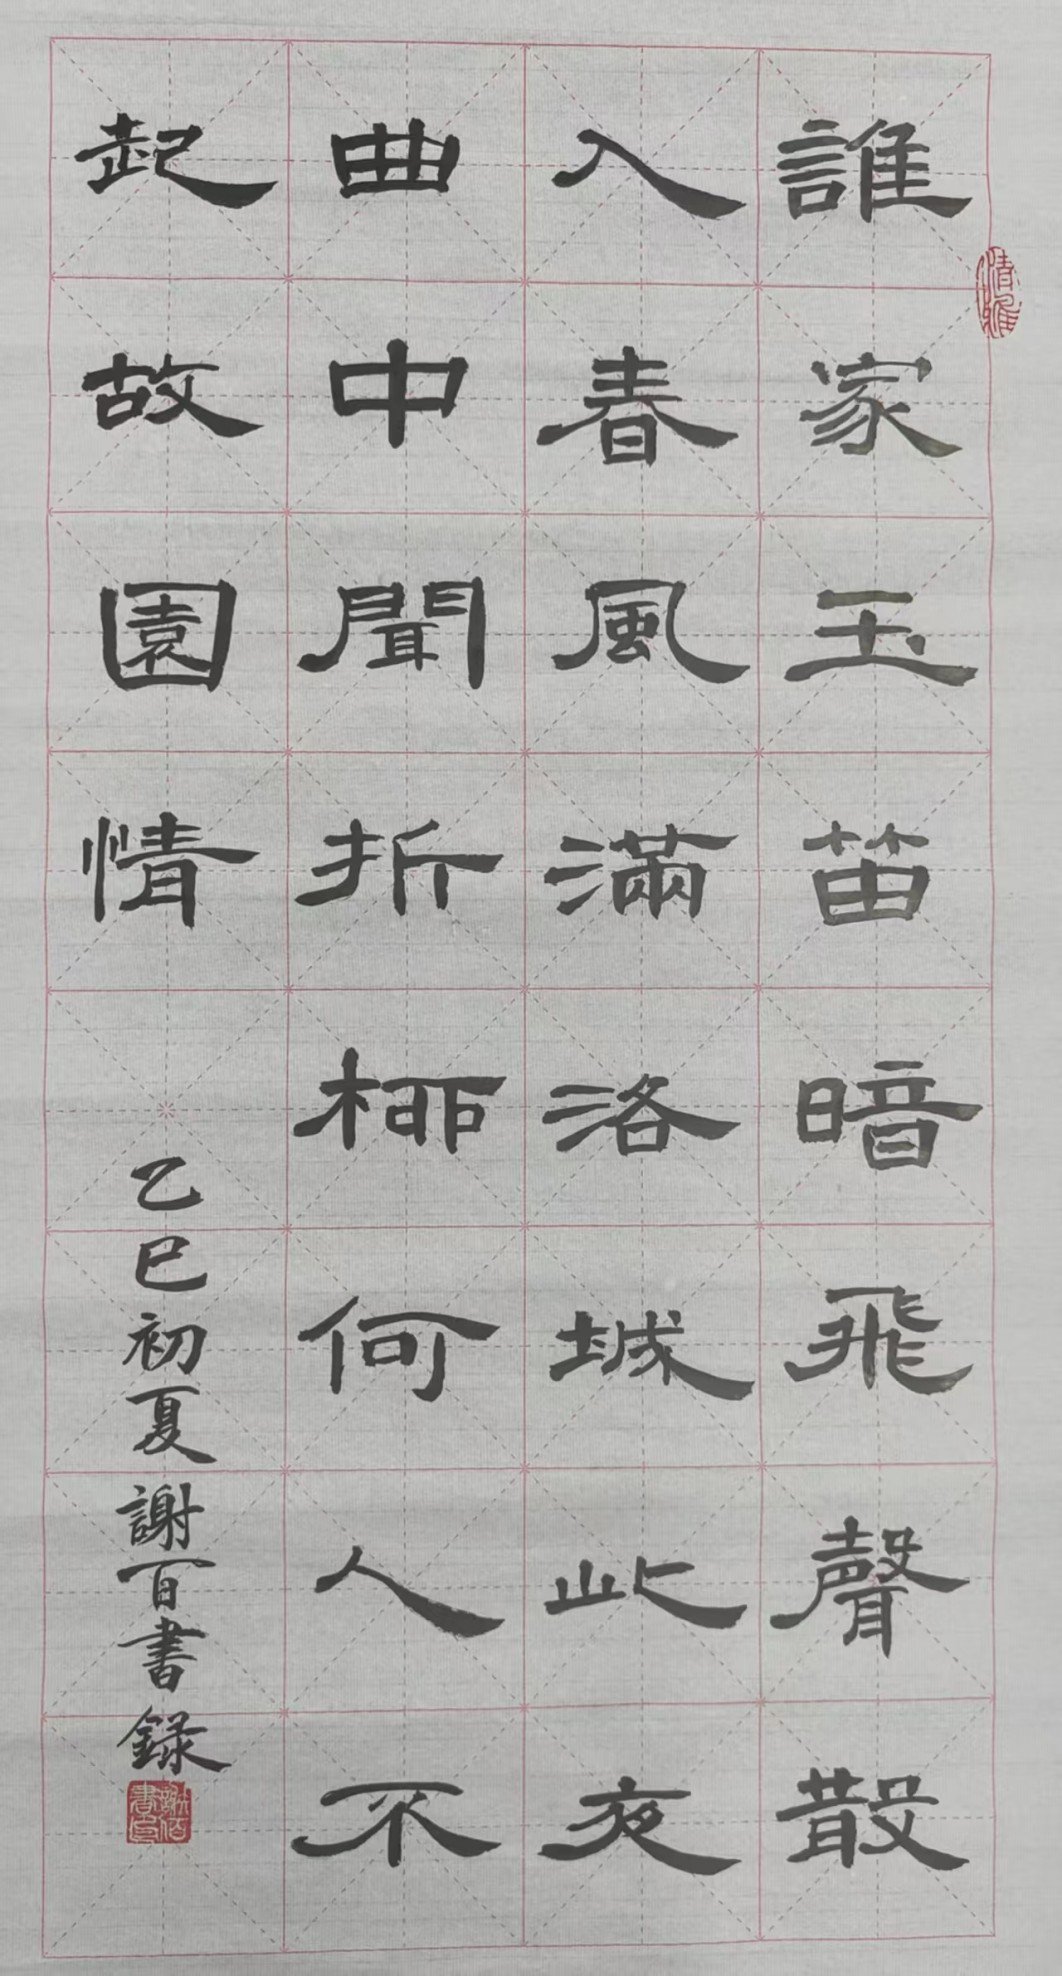 誰家玉笛暗飛聲散
入春風滿洛城此夜
曲中聞折柳何人不
起故園情
乙巳初夏謝百書錄
清雅
謝佰書印